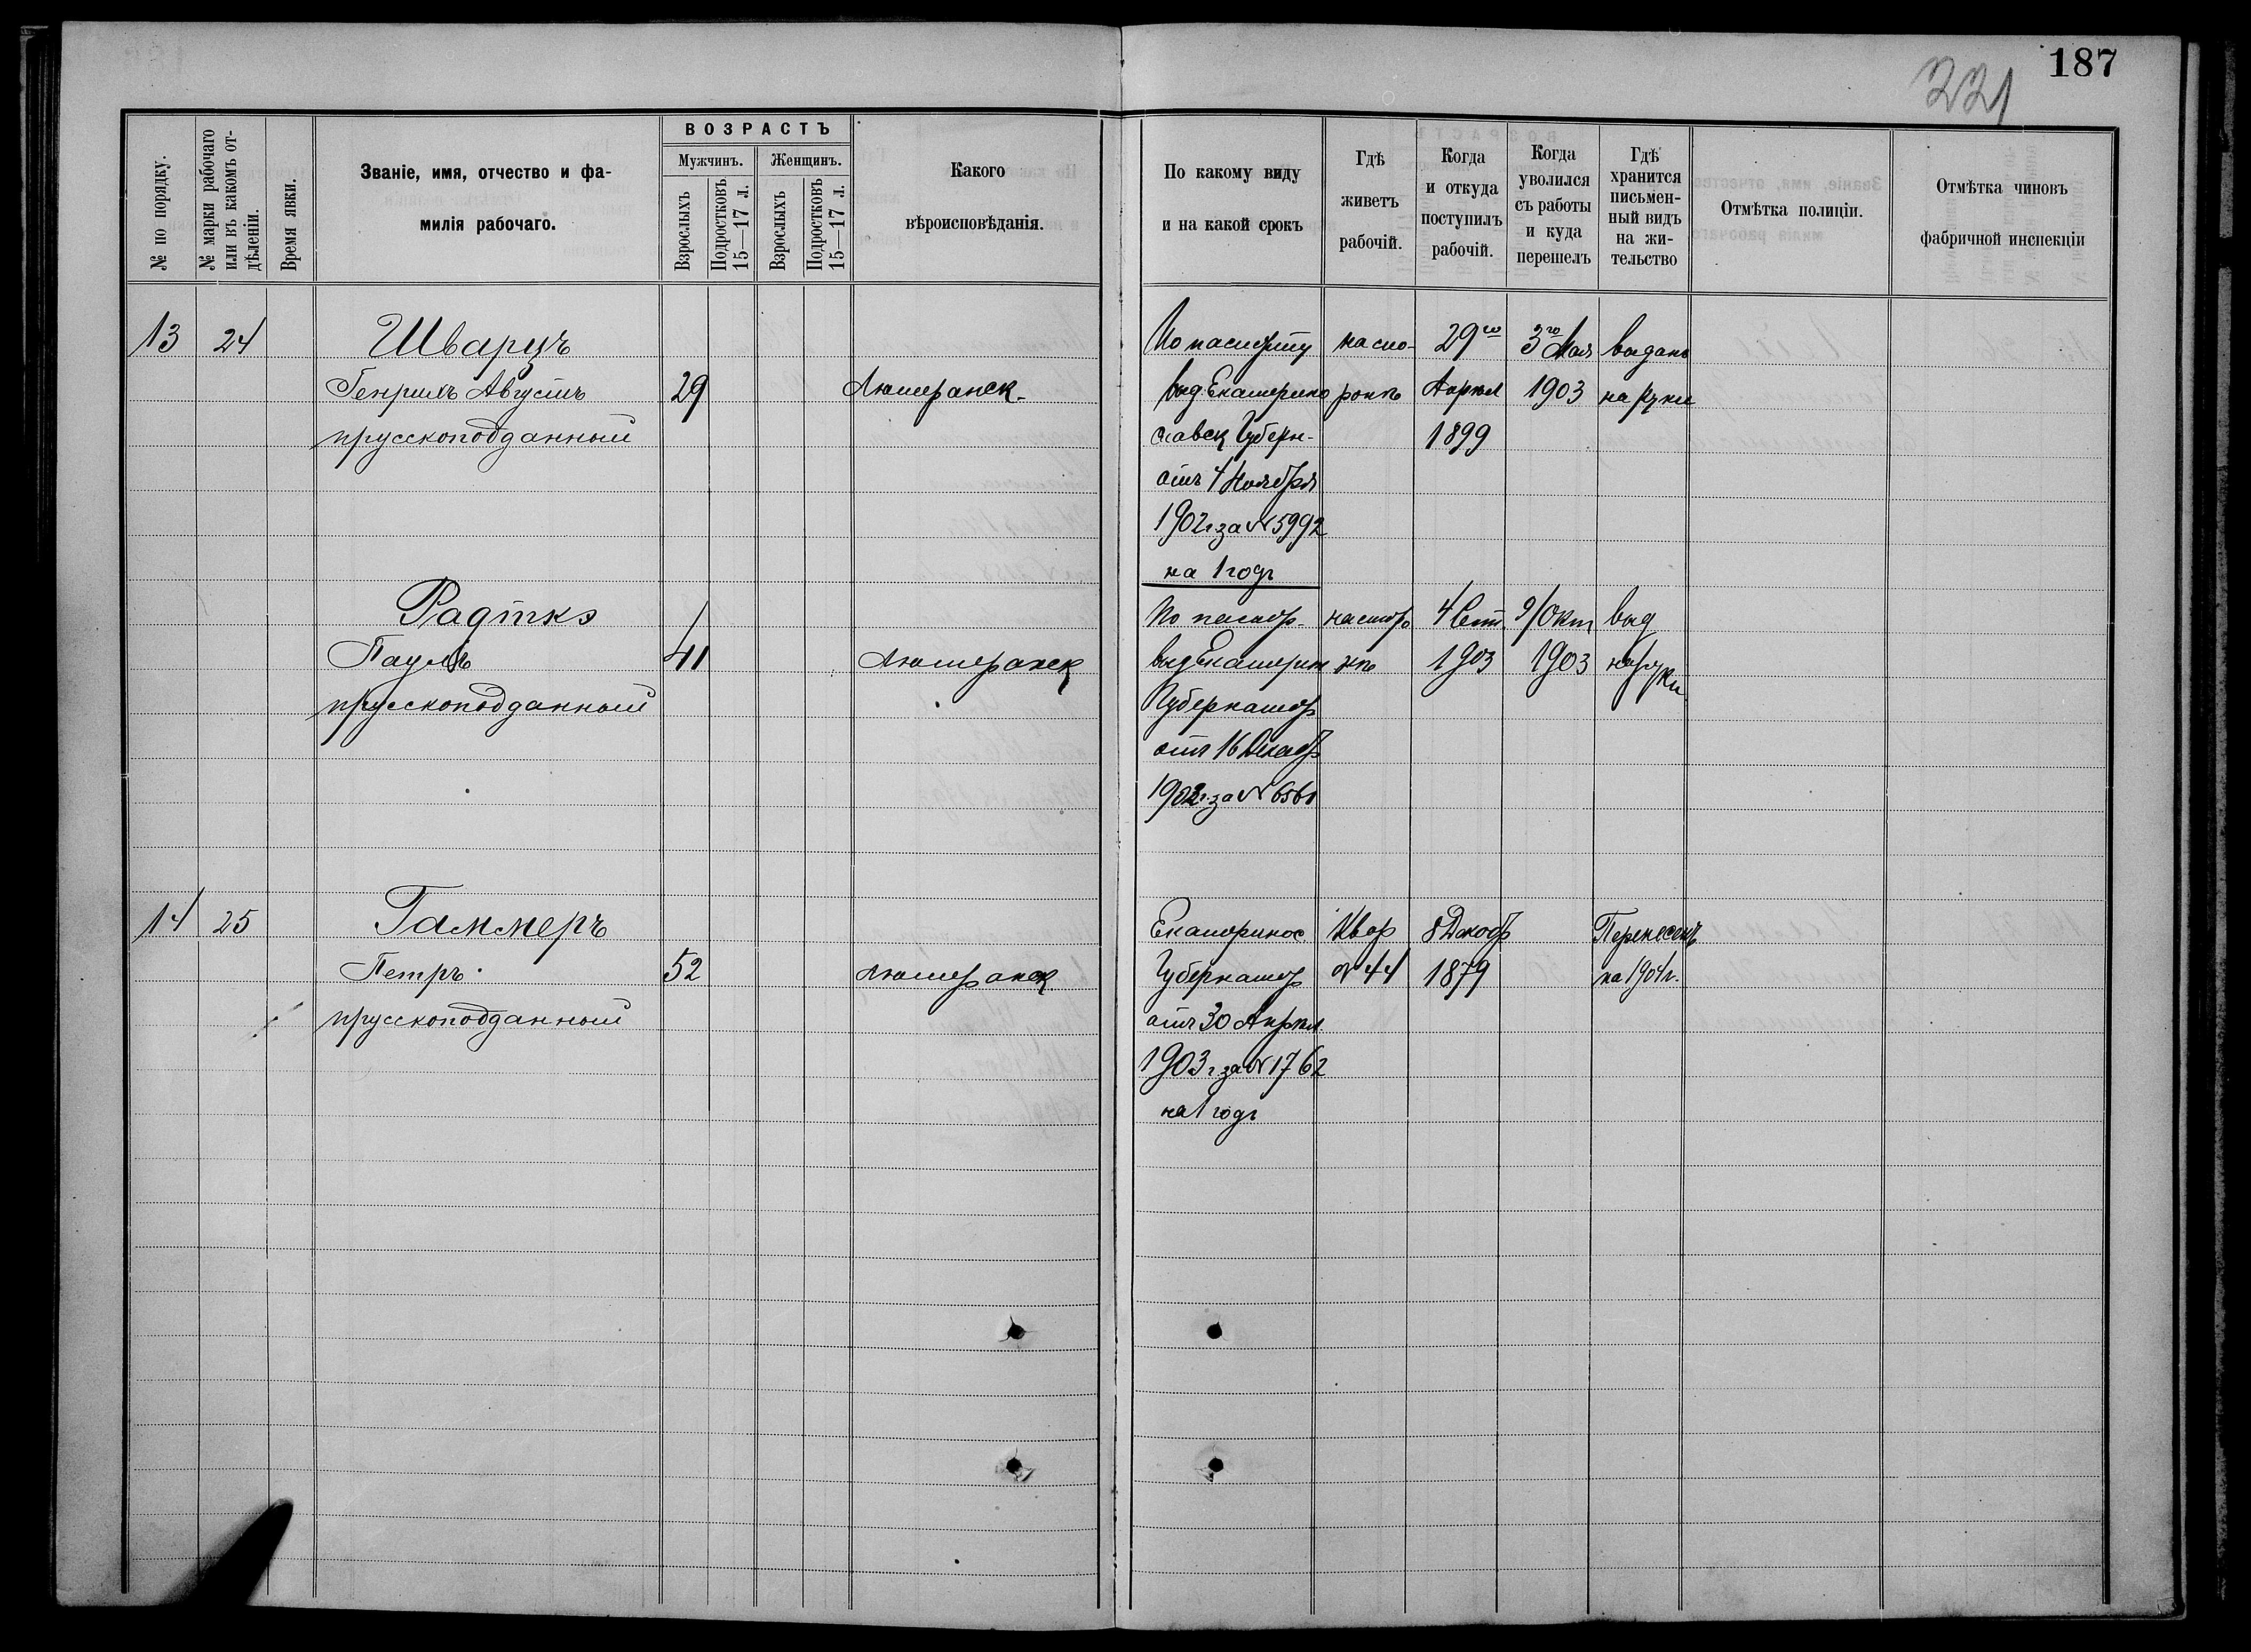 187
221
№ по порядку.
№ марки рабочаго
или въ какомъ от-
дѣленіи.
Время явки.
Званіе, имя, отчество и фа-
милія рабочаго.
ВОЗРАСТЪ
Мужчинъ.
Женщинъ.
Взрослыхъ
Подростковъ
15—17 л.
Взрослыхъ
Подростковъ
15—17 л.
Какого
вѣроисповѣданія.
По какому виду
и на какой срокъ
Гдѣ
живетъ
рабочій.
Когда
и откуда
поступилъ
рабочій.
Когда
уволился
съ работы
и куда
перешелъ
Гдѣ
хранится
письмен-
ный видъ
на жи-
тельство
Отмѣтка полиціи.
Отмѣтка чиновъ
фабричной инспекціи
13 24 Шварцъ
Генрихъ Августъ 29 Лютеранск.
прусскоподданный
По паспорту
выд Екатерино
славск Губерн-
отъ 4 Ноября
1902 г за № 5992
на 1 годъ
на сто-
ронѣ
29го
Апрѣл
1899
3го Мая
1903
выданъ
на руки
Радткэ
Пауль 41 Лютеранск
прусскоподданный
По паспор-
выд Екатерин
Губернатор
отъ 16 Декабр
1902 г. за №
на сторо
нѣ
4 Сент.
1903
9/Окт
1903
выд
на руки
14 25 Гаммеръ
Петръ 52 Лютеранск
прусскоподданный
Екатеринос.
Губернатор
отъ 30 Апрѣл.
1903 г за № 1762
на 1 годъ
Квар
№ 44
8 Декабр
1879
Перенесенъ
на 1904 г.